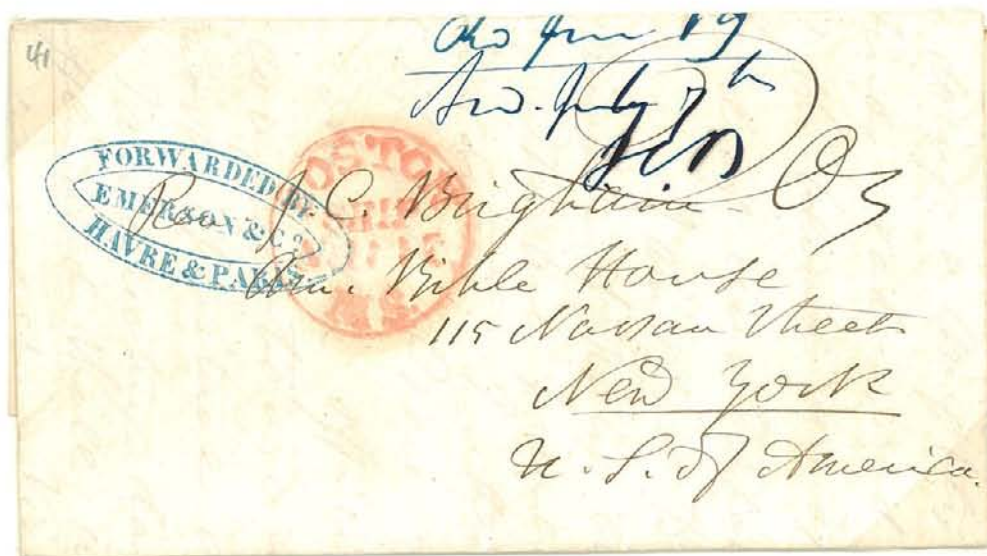 41
June 19
July 7th
FORWARDED BY
EMERSON & Co
HAVRE & PARIS
BOSTON
Rev J. C. Brigham
Am. Bible House
115 Nassau Street
New York
U. S. of America.